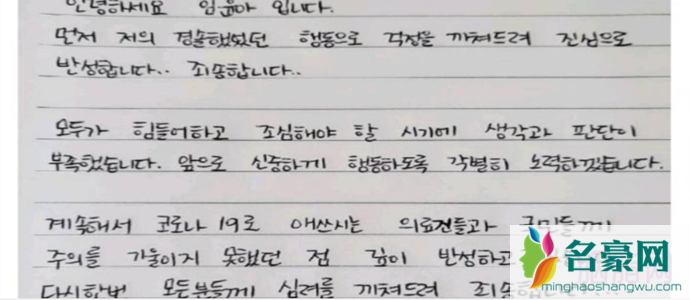 안녕하세요 임윤아 입니다.
먼저 저의 경솔했었던 행동으로 걱정을 끼쳐드려 진심으로
반성합니다.. 죄송합니다..
모두가 힘들어하고 조심해야 할 시기에 생각과 판단이
부족했습니다. 앞으로 신중하게 행동하도록 각별히 노력하겠습니다.
계속해서 코로나 19로 애쓰시는 의료진들과 국민들께
주의를 기울이지 못했던 점 깊이 반성하고
다시한번 모든분들께 심려를 끼쳐드려
名豪网
minghaoshangwu.com